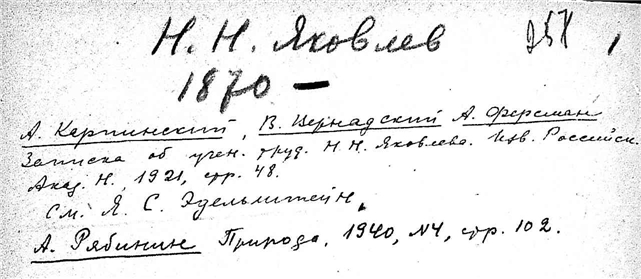 Н. Н. Яковлев
1870 —
А. Карпинский, В. Вернадский А. Ферсман
Записка об учен. труд. Н. Н. Яковлева. Изв. Российск.
Акад. Н., 1921, стр. 48.
См. Я. С. Эдельштейн.
А. Рябинин Природа, 1940, N4, стр. 102.